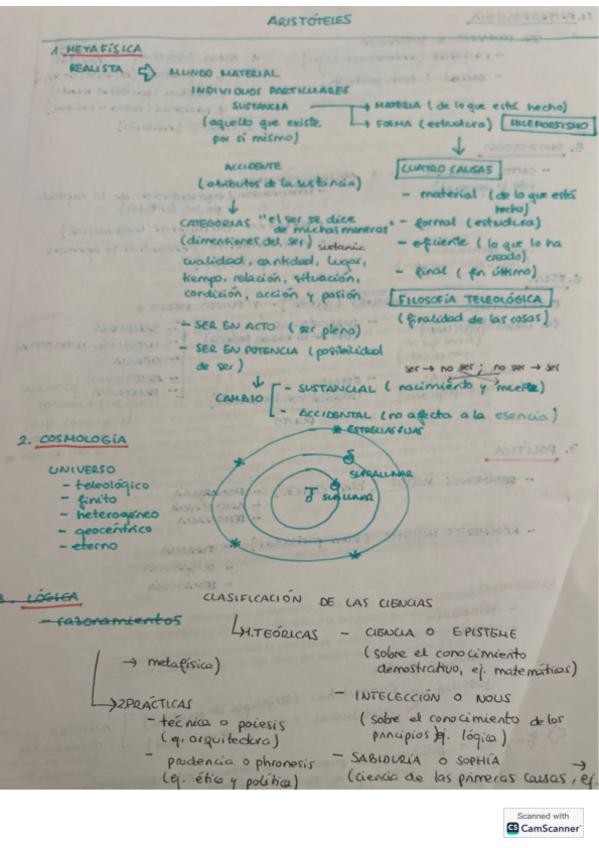 ARISTÓTELES
1. METAFÍSICA
REALISTA ⇨ MUNDO MATERIAL
INDIVIDUOS PARTICULARES
SUSTANCIA → MATERIA (de lo que está hecho)
(aquello que existe → FORMA (estructura) HILEMORFISMO
por sí mismo)
ACCIDENTE
(atributos de la sustancia)
CUATRO CAUSAS
- material (de lo que está
hecho)
- formal (estructura)
- eficiente (lo que lo ha
creado)
- final (fin último)
FILOSOFÍA TELEOLÓGICA
(finalidad de las cosas)
CATEGORÍAS "el ser se dice
de muchas maneras"
(dimensiones del ser) sustancia
cualidad, cantidad, lugar,
tiempo, relación, situación,
condición, acción y pasión
- SER EN ACTO (ser pleno)
- SER EN POTENCIA (posibilidad
de ser)
ser → no ser; no ser → ser
CAMBIO - SUSTANCIAL (nacimiento y muerte)
- ACCIDENTAL (no afecta a la esencia)
2. COSMOLOGÍA
ESTRELLAS FIJAS
SUPRALUNAR
SUBLUNAR
UNIVERSO
- teleológico
- finito
- heterogéneo
- geocéntrico
- eterno
3. LÓGICA
- razonamientos
CLASIFICACIÓN DE LAS CIENCIAS
1.TEÓRICAS - CIENCIA O EPISTEME
(sobre el conocimiento
demostrativo, ej. matemáticas)
- INTELECCIÓN O NOUS
(sobre el conocimiento de los
principios ej. lógica)
- SABIDURÍA O SOPHÍA
(ciencia de las primeras causas, ej.
→ metafísica)
2.PRÁCTICAS
- técnica o poiesis
(ej. arquitectura)
- prudencia o phronesis
(ej. ética y política)
Scanned with
CS CamScanner